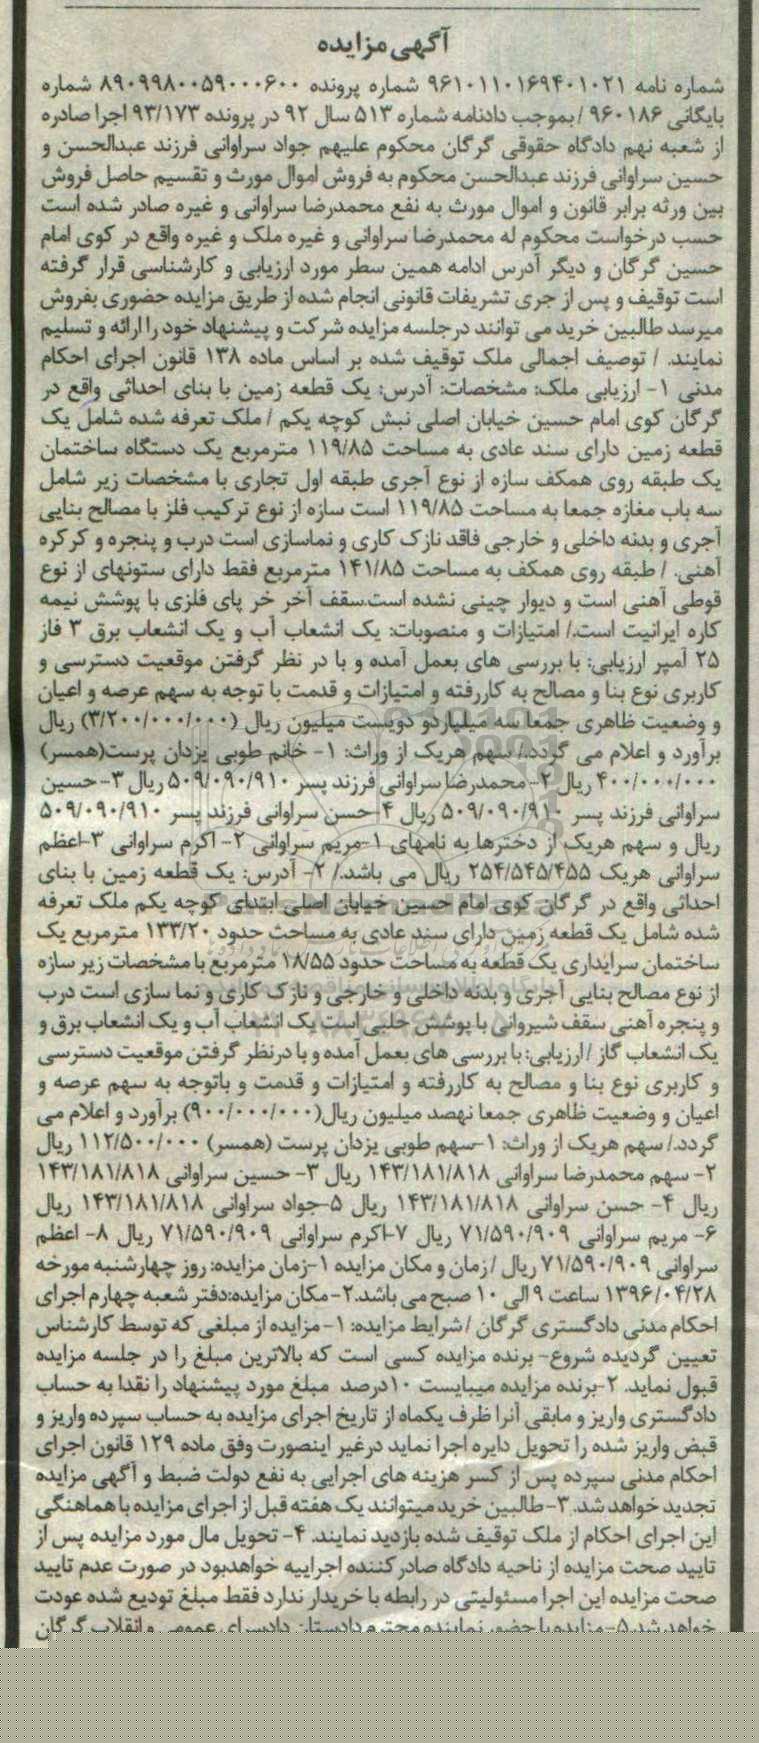 آگهی مزایده
شماره نامه ۹۶۱۰۱۱۰۱۶۹۴۰۱۰۲۱ شماره پرونده ۸۹۰۹۹۸۰۰۵۹۰۰۰۶۰۰ شماره
بایگانی ۹۶۰۱۸۶ / بموجب دادنامه شماره ۵۱۳ سال ۹۲ در پرونده ۹۳/۱۷۳ اجرا صادره
از شعبه نهم دادگاه حقوقی گرگان محکوم علیهم جواد سراوانی فرزند عبدالحسن و
حسین سراوانی فرزند عبدالحسن محکوم به فروش اموال مورث و تقسیم حاصل فروش
بین ورثه برابر قانون و اموال مورث به نفع محمدرضا سراوانی و غیره صادر شده است
حسب درخواست محکوم له محمدرضا سراوانی و غیره ملک و غیره واقع در کوی امام
حسین گرگان و دیگر آدرس ادامه همین سطر مورد ارزیابی و کارشناسی قرار گرفته
است توقیف و پس از جری تشریفات قانونی انجام شده از طریق مزایده حضوری بفروش
میرسد طالبین خرید می توانند درجلسه مزایده شرکت و پیشنهاد خود را ارائه و تسلیم
نمایند. / توصیف اجمالی ملک توقیف شده بر اساس ماده ۱۳۸ قانون اجرای احکام
مدنی ۱- ارزیابی ملک: مشخصات: آدرس: یک قطعه زمین با بنای احداثی واقع در
گرگان کوی امام حسین خیابان اصلی نبش کوچه یکم / ملک تعرفه شده شامل یک
قطعه زمین دارای سند عادی به مساحت ۱۱۹/۸۵ مترمربع یک دستگاه ساختمان
یک طبقه روی همکف سازه از نوع آجری طبقه اول تجاری با مشخصات زیر شامل
سه باب مغازه جمعا به مساحت ۱۱۹/۸۵ است سازه از نوع ترکیب فلز با مصالح بنایی
آجری و بدنه داخلی و خارجی فاقد نازک کاری و نماسازی است درب و پنجره و کرکره
آهنی. / طبقه روی همکف به مساحت ۱۴۱/۸۵ مترمربع فقط دارای ستونهای از نوع
قوطی آهنی است و دیوار چینی نشده است.سقف آخر خر پای فلزی با پوشش نیمه
کاره ایرانیت است./ امتیازات و منصوبات: یک انشعاب آب و یک انشعاب برق ۳ فاز
۲۵ آمپر ارزیابی: با بررسی های بعمل آمده و با در نظر گرفتن موقعیت دسترسی و
کاربری نوع بنا و مصالح به کاررفته و امتیازات و قدمت با توجه به سهم عرصه و اعیان
و وضعیت ظاهری جمعا سه میلیاردو دویست میلیون ریال (۳/۲۰۰/۰۰۰/۰۰۰) ریال
برآورد و اعلام می گردد./ سهم هریک از وراث: ۱- خانم طوبی یزدان پرست(همسر)
۴۰۰/۰۰۰/۰۰۰ ریال ۲- محمدرضا سراوانی فرزند پسر ۵۰۹/۰۹۰/۹۱۰ ریال ۳- حسین
سراوانی فرزند پسر ۵۰۹/۰۹۰/۹۱۰ ریال ۴-حسن سراوانی فرزند پسر ۵۰۹/۰۹۰/۹۱۰
ریال و سهم هریک از دخترها به نامهای ۱-مریم سراوانی ۲- اکرم سراوانی ۳-اعظم
سراوانی هریک ۲۵۴/۵۴۵/۴۵۵ ریال می باشد./ ۲- آدرس: یک قطعه زمین با بنای
احداثی واقع در گرگان کوی امام حسین خیابان اصلی ابتدای کوچه یکم ملک تعرفه
شده شامل یک قطعه زمین دارای سند عادی به مساحت حدود ۱۳۳/۲۰ مترمربع یک
ساختمان سرایداری یک قطعه به مساحت حدود ۱۸/۵۵ مترمربع با مشخصات زیر سازه
از نوع مصالح بنایی آجری و بدنه داخلی و خارجی و نازک کاری و نما سازی است درب
و پنجره آهنی سقف شیروانی با پوشش حلبی است یک انشعاب آب و یک انشعاب برق و
یک انشعاب گاز / ارزیابی: با بررسی های بعمل آمده و با درنظر گرفتن موقعیت دسترسی
و کاربری نوع بنا و مصالح به کاررفته و امتیازات و قدمت و باتوجه به سهم عرصه و
اعیان و وضعیت ظاهری جمعا نهصد میلیون ریال(۹۰۰/۰۰۰/۰۰۰) برآورد و اعلام می
گردد./ سهم هریک از وراث: ۱-سهم طوبی یزدان پرست (همسر) ۱۱۲/۵۰۰/۰۰۰ ریال
۲- سهم محمدرضا سراوانی ۱۴۳/۱۸۱/۸۱۸ ریال ۳- حسین سراوانی ۱۴۳/۱۸۱/۸۱۸
ریال ۴- حسن سراوانی ۱۴۳/۱۸۱/۸۱۸ ریال ۵-جواد سراوانی ۱۴۳/۱۸۱/۸۱۸ ریال
۶- مریم سراوانی ۷۱/۵۹۰/۹۰۹ ریال ۷-اکرم سراوانی ۷۱/۵۹۰/۹۰۹ ریال ۸- اعظم
سراوانی ۷۱/۵۹۰/۹۰۹ ریال / زمان و مکان مزایده ۱-زمان مزایده: روز چهارشنبه مورخه
۱۳۹۶/۰۴/۲۸ ساعت ۹ الی ۱۰ صبح می باشد.۲- مکان مزایده:دفتر شعبه چهارم اجرای
احکام مدنی دادگستری گرگان / شرایط مزایده: ۱- مزایده از مبلغی که توسط کارشناس
تعیین گردیده شروع- برنده مزایده کسی است که بالاترین مبلغ را در جلسه مزایده
قبول نماید. ۲-برنده مزایده میبایست ۱۰درصد مبلغ مورد پیشنهاد را نقدا به حساب
دادگستری واریز و مابقی آنرا ظرف یکماه از تاریخ اجرای مزایده به حساب سپرده واریز و
قبض واریز شده را تحویل دایره اجرا نماید درغیر اینصورت وفق ماده ۱۲۹ قانون اجرای
احکام مدنی سپرده پس از کسر هزینه های اجرایی به نفع دولت ضبط و آگهی مزایده
تجدید خواهد شد. ۳- طالبین خرید میتوانند یک هفته قبل از اجرای مزایده با هماهنگی
این اجرای احکام از ملک توقیف شده بازدید نمایند. ۴- تحویل مال مورد مزایده پس از
تایید صحت مزایده از ناحیه دادگاه صادرکننده اجراییه خواهدبود در صورت عدم تایید
صحت مزایده این اجرا مسئولیتی در رابطه با خریدار ندارد فقط مبلغ تودیع شده عودت
خواهد شد.۵- مزایده با حضور نماینده محترم دادستان دادسرای عمومی و انقلاب گرگان